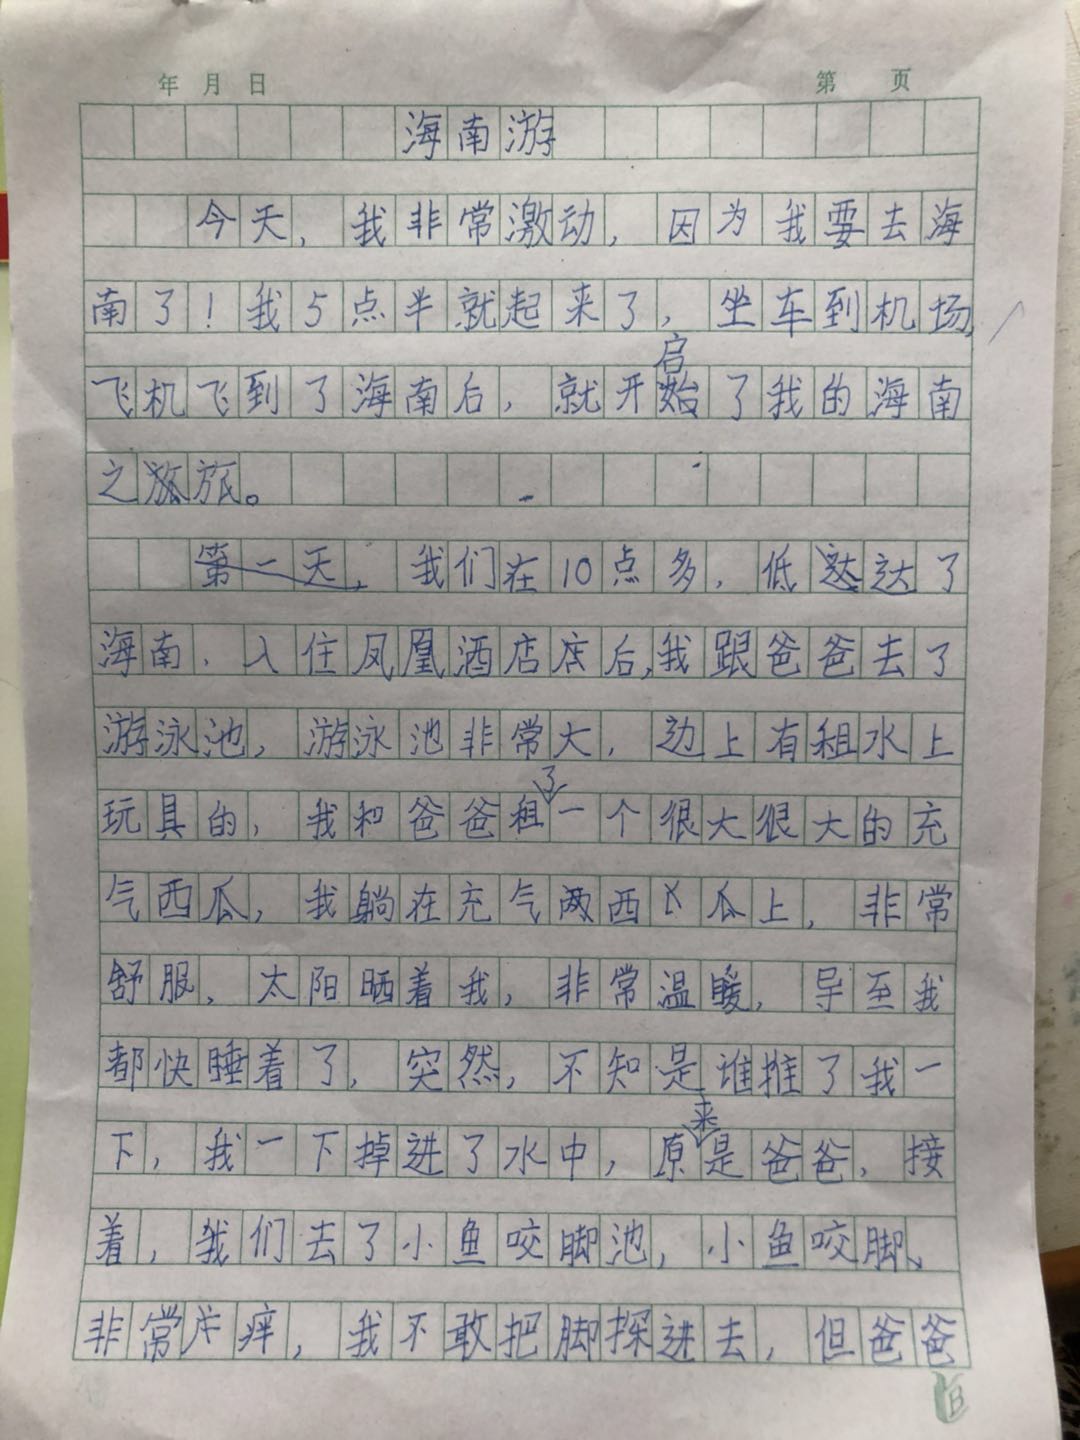 年 月 日 第 页
海南游
今天，我非常激动，因为我要去海
南了！我5点半就起来了，坐车到机场，
飞机飞到了海南后，就开启了我的海南
之旅。
我们在10点多，低达了
海南，入住凤凰酒店后，我跟爸爸去了
游泳池，游泳池非常大，边上有租水上
玩具的，我和爸爸租了一个很大很大的充
气西瓜，我躺在充气西瓜上，非常
舒服，太阳晒着我，非常温暖，导至我
都快睡着了，突然，不知是谁推了我一
下，我一下掉进了水中，原来是爸爸，接
着，我们去了小鱼咬脚池，小鱼咬脚、
非常痒，我不敢把脚探进去，但爸爸